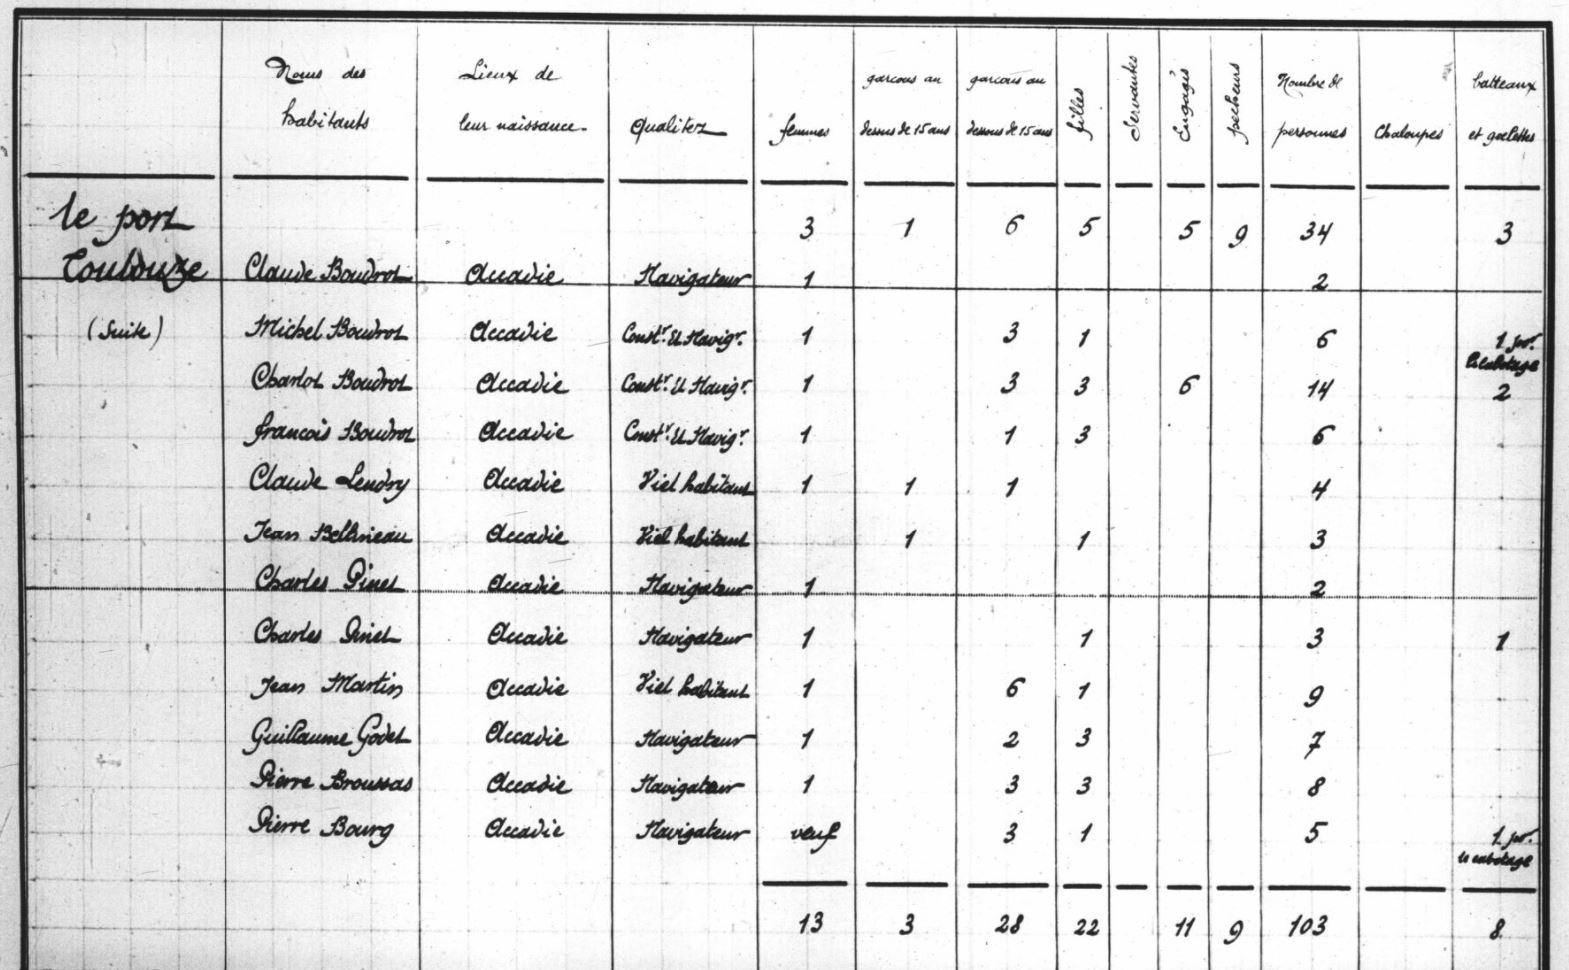 Noms des habitants | Lieux de leur naissance | Qualitez | femmes | garcons au dessus de 15 ans | garcons au dessous de 15 ans | filles | Servantes | Engagés | pecheurs | Nombre de personnes | Chaloupes | batteaux et goelettes
le port | 3 | 1 | 6 | 5 | 5 | 9 | 34 | 3
Toulouze | Claude Boudrot | Accadie | Navigateur | 1 | 2
(Suite) | Michel Boudrot | Accadie | Constr. et Navigr. | 1 | 3 | 1 | 6 | 1 pr. le cabotage
Charlot Boudrot | Accadie | Constr. et Navigr. | 1 | 3 | 3 | 6 | 14 | 2
francois Boudrot | Accadie | Constr. et Navigr. | 1 | 1 | 3 | 6
Claude Lendry | Accadie | Viel habitant | 1 | 1 | 1 | 4
Jean | Accadie | Viel habitant | 1 | 1 | 3
Charles Pinet | Accadie | Navigateur | 1 | 2
Charles Pinet | Accadie | Navigateur | 1 | 1 | 3 | 1
Jean Martin | Accadie | Viel habitant | 1 | 6 | 1 | 9
Guillaume Godet | Accadie | Navigateur | 1 | 2 | 3 | 7
Pierre Broussas | Accadie | Navigateur | 1 | 3 | 3 | 8
Pierre Bourg | Accadie | Navigateur | veuf | 3 | 1 | 5 | 1 pr. le cabotage
13 | 3 | 28 | 22 | 11 | 9 | 103 | 8